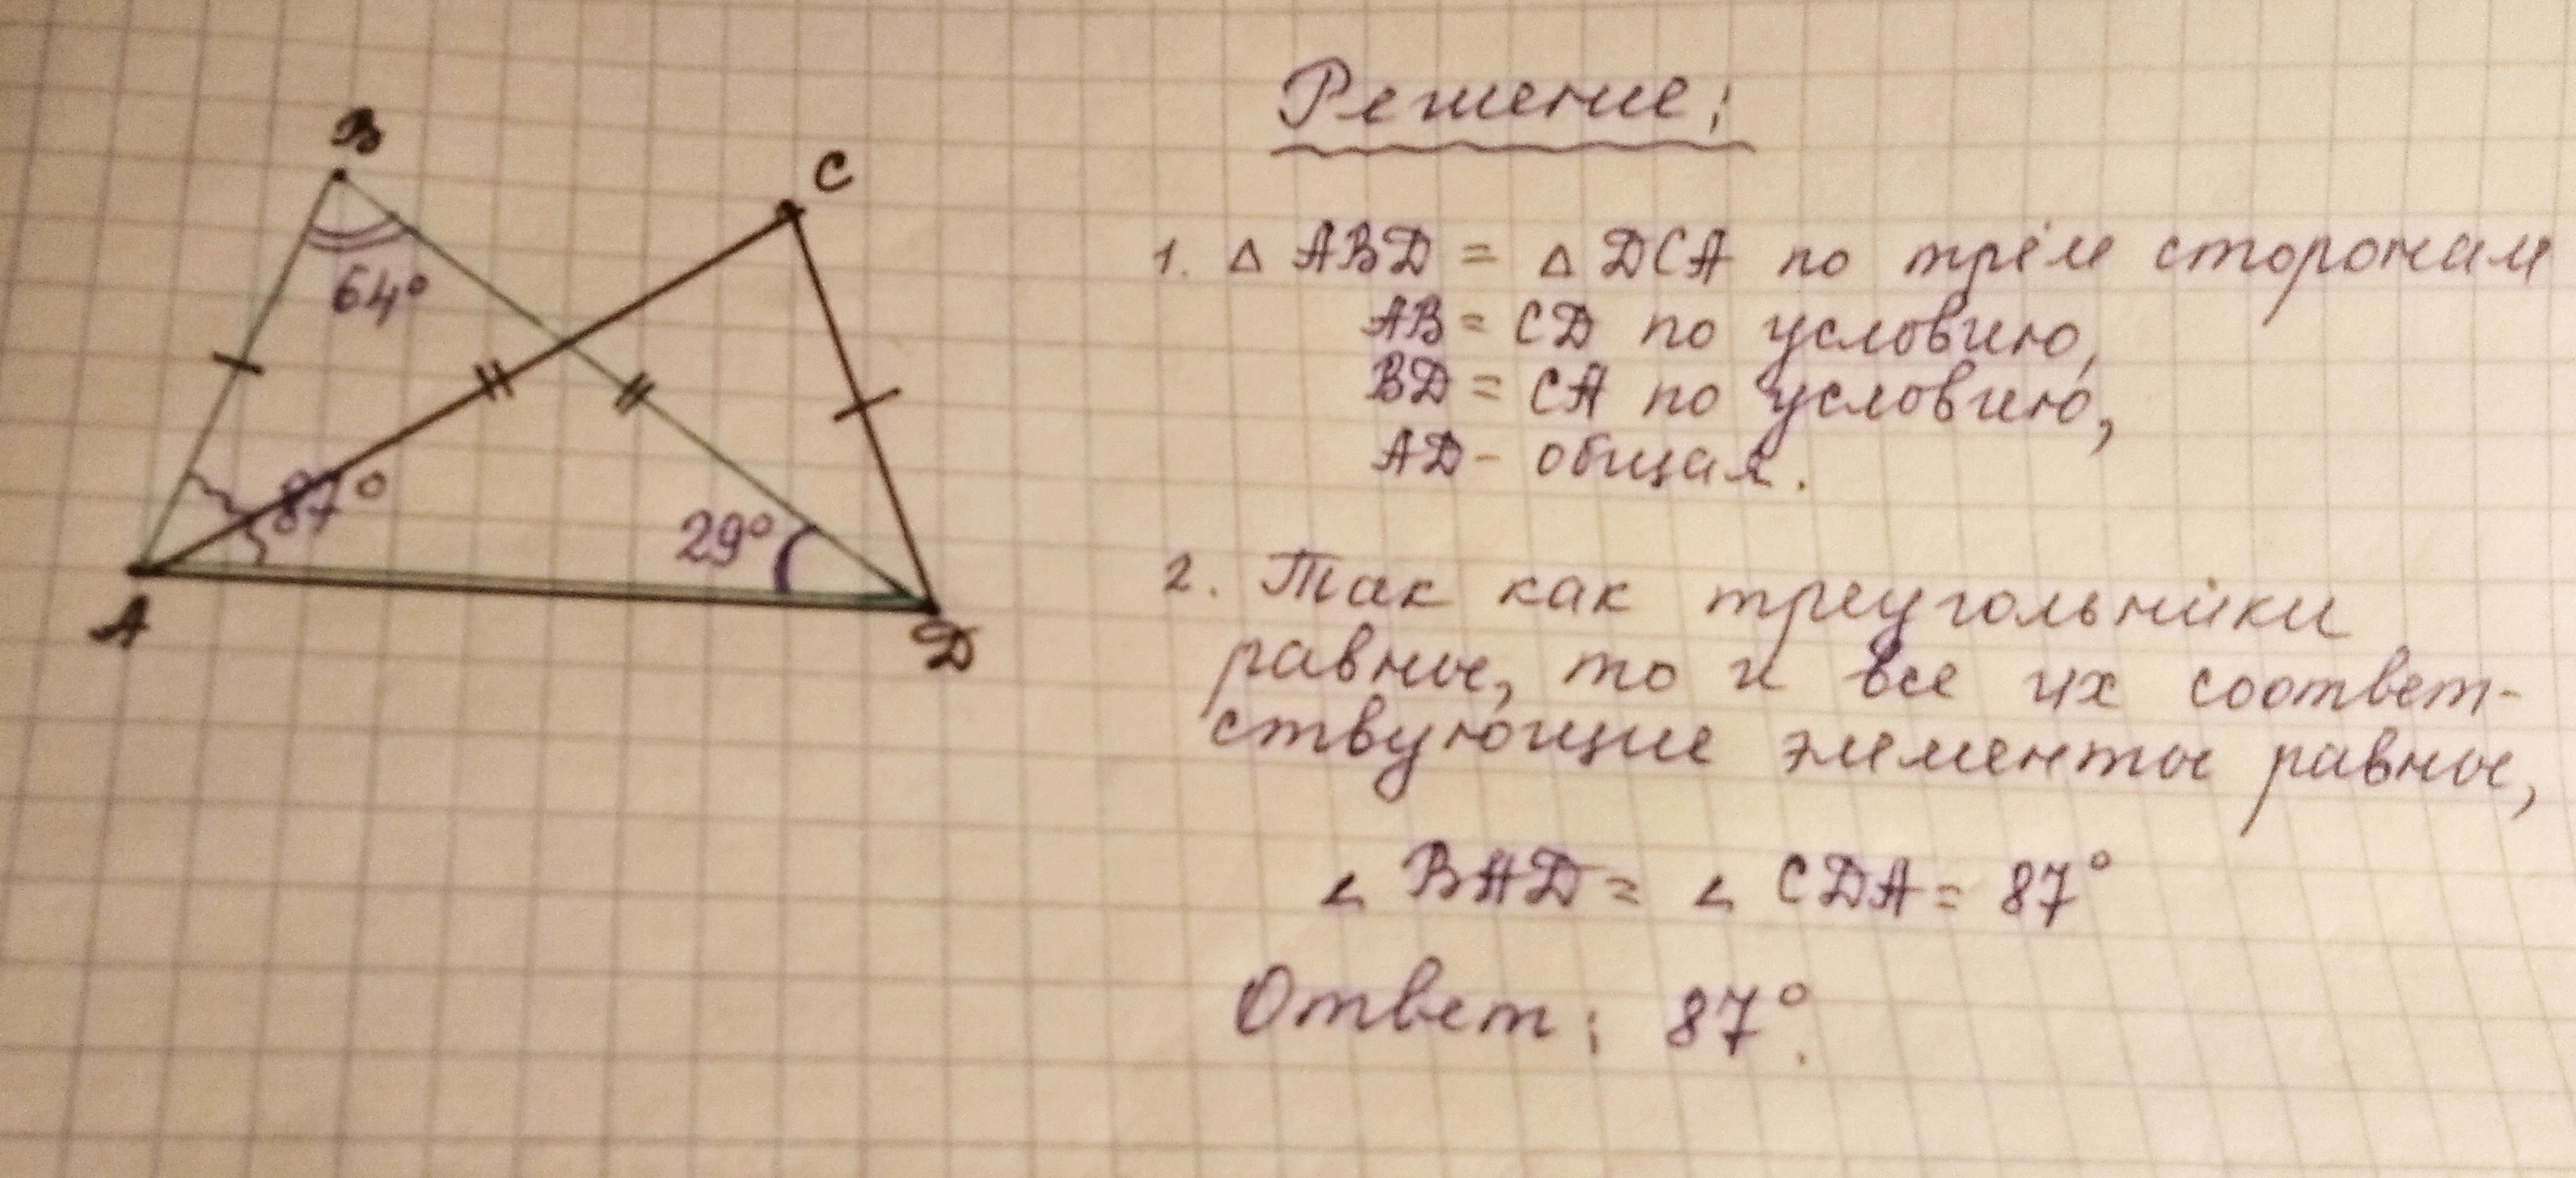 B
C
64°
87°
29°
A
D
Решение:
1. △ ABD = △ DCA по трём сторонам
AB = CD по условию,
BD = CA по условию,
AD - общая.
2. Так как треугольники
равны, то и все их соответ-
ствующие элементы равны,
∠ BAD = ∠ CDA = 87°
Ответ: 87°.